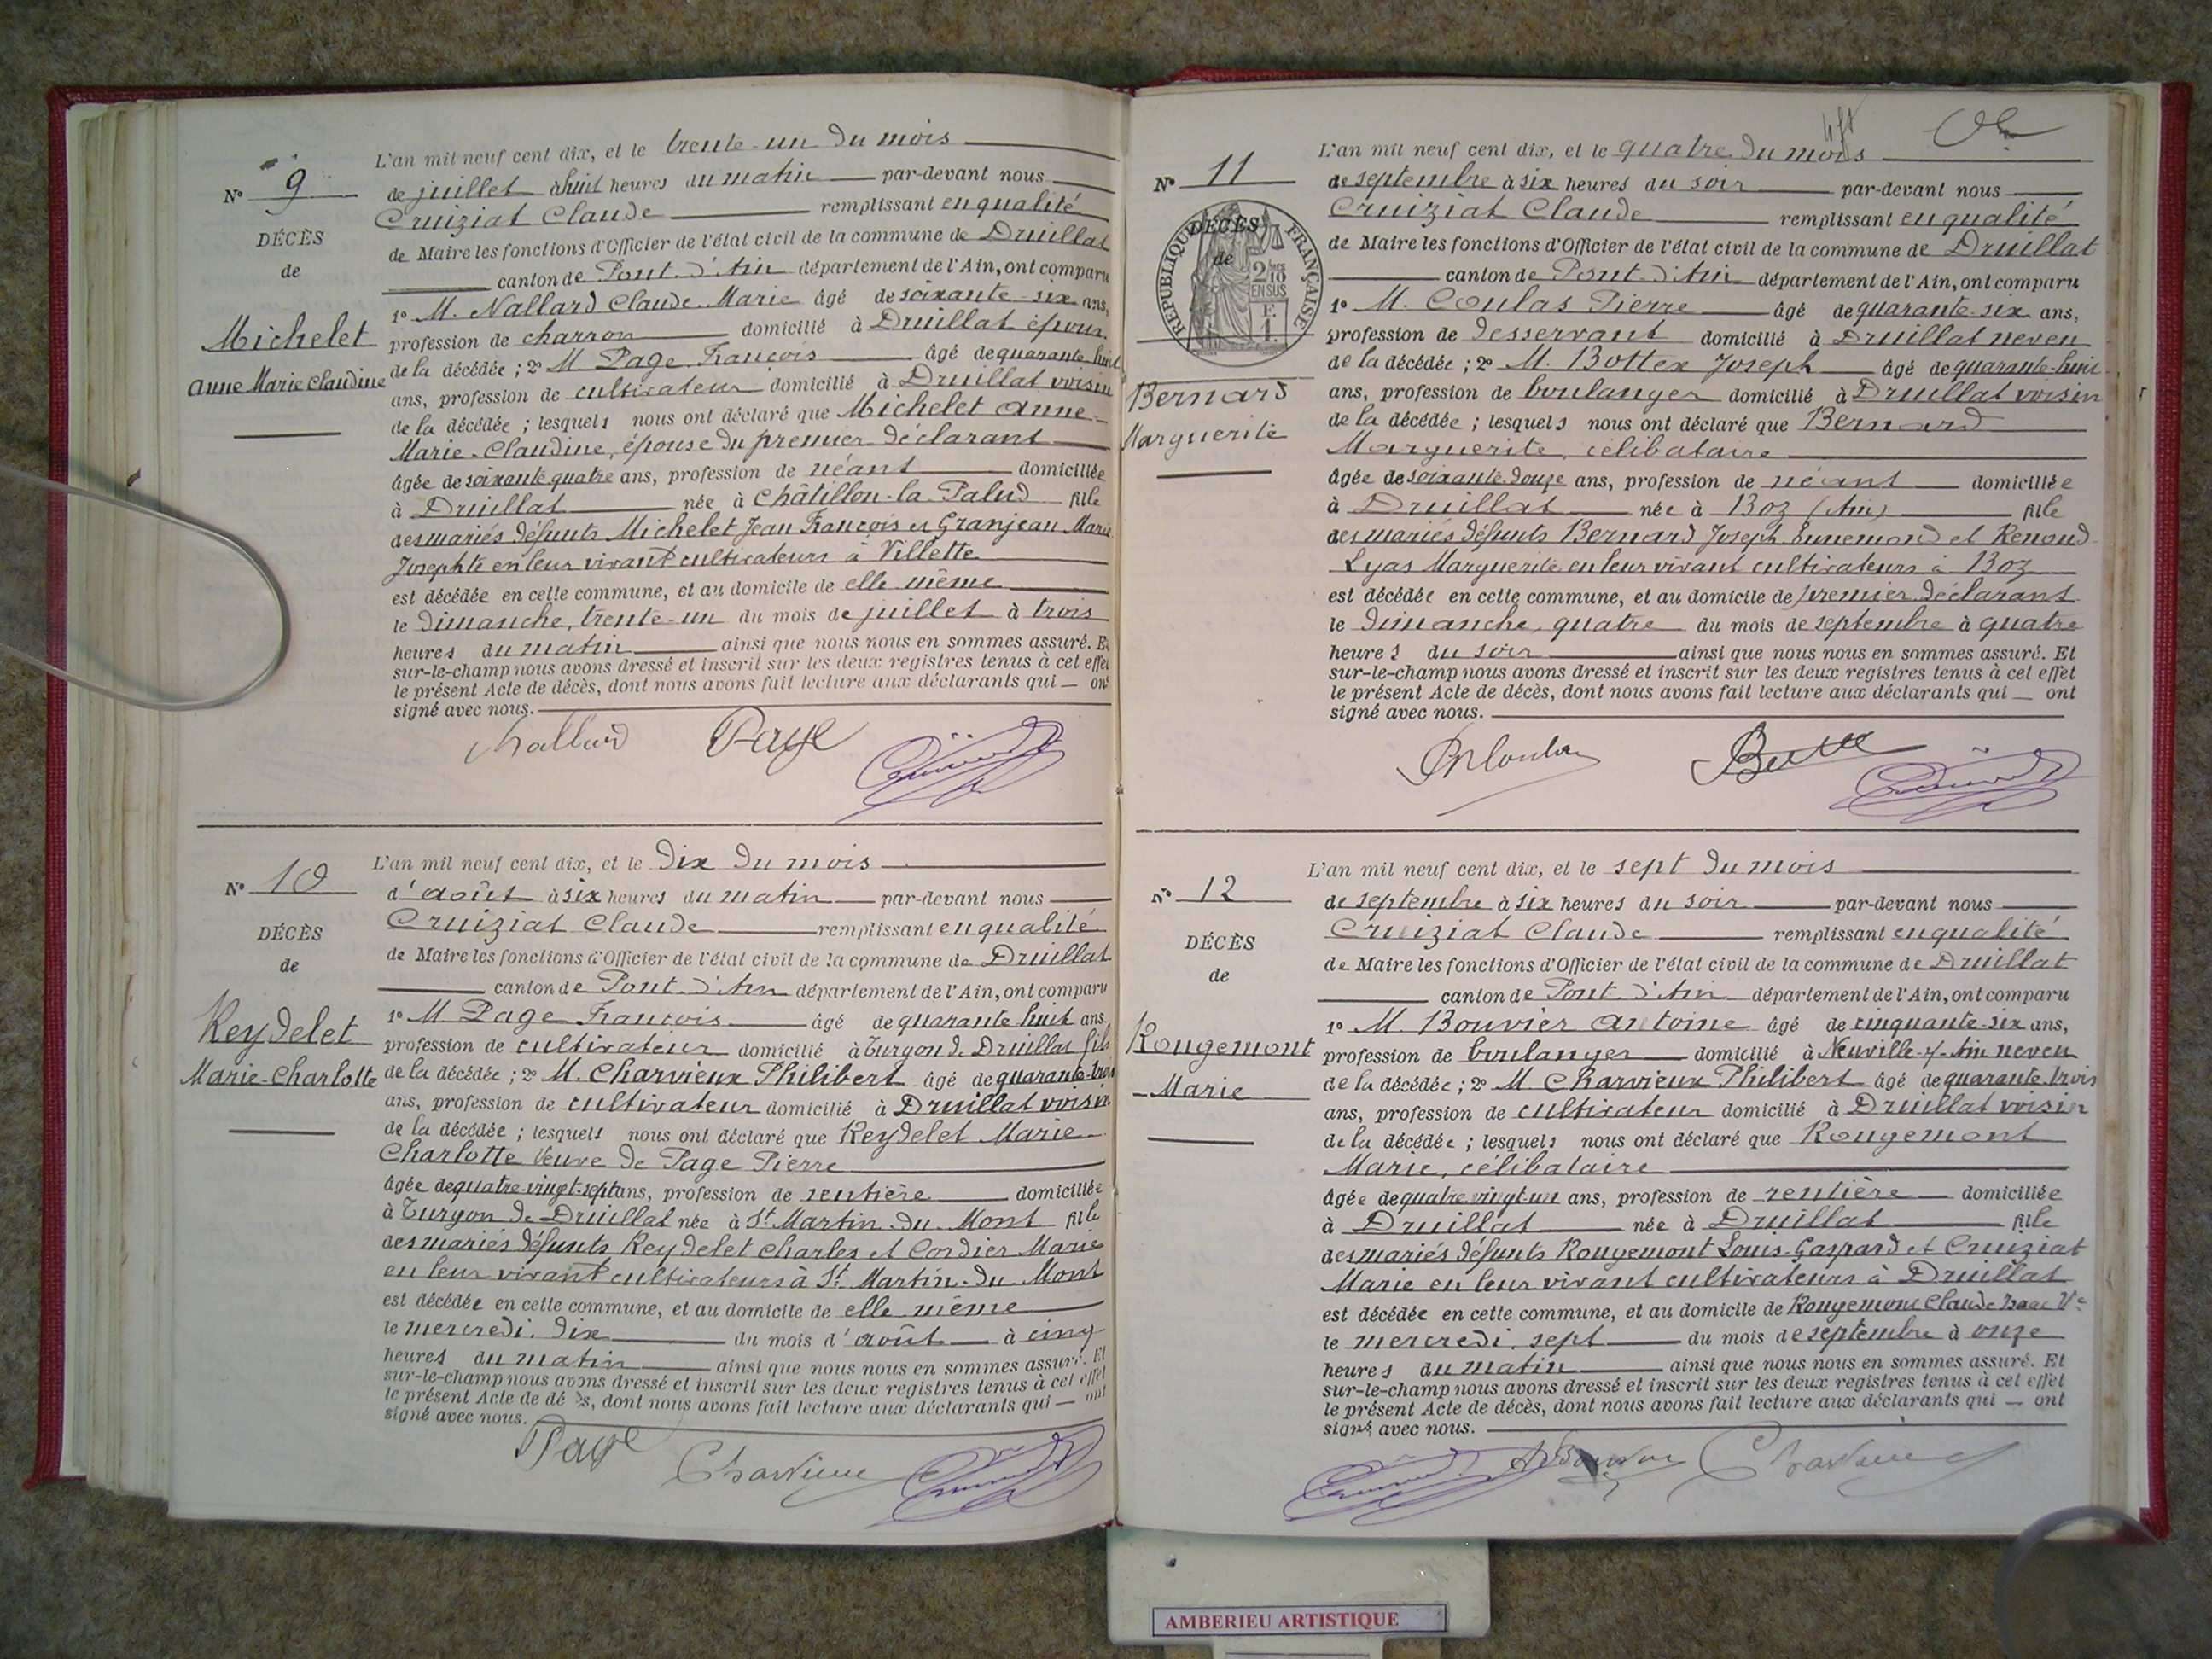 L'an mil neuf cent dix, et le trente-un du mois
de juillet à huit heures du matin par-devant nous
Cruiziat Claude remplissant en qualité
de Maire les fonctions d'Officier de l'état civil de la commune de Druillat
canton de Pont-d'Ain département de l'Ain, ont comparu
1º M. Nallard Claude-Marie âgé de soixante-six ans,
profession de charron domicilié à Druillat époux
de la décédée ; 2º M Page François âgé de quarante-huit
ans, profession de cultivateur domicilié à Druillat voisin
de la décédée ; lesquels nous ont déclaré que Michelet Anne-
Marie-Claudine, épouse du premier déclarant
âgée de soixante quatre ans, profession de néant domiciliée
à Druillat née à Châtillon-la-Palud fille
des mariés défunts Michelet Jean François et Granjean Marie
Josephte en leur vivant cultivateurs à Villette
est décédée en cette commune, et au domicile de elle même
le dimanche, trente-un du mois de juillet à trois
heures du matin ainsi que nous nous en sommes assuré. Et
sur-le-champ nous avons dressé et inscrit sur les deux registres tenus à cet effet
le présent Acte de décès, dont nous avons fait lecture aux déclarants qui — ont
signé avec nous.
Nº 9
DÉCÈS
de
Michelet
Anne Marie Claudine
Nallard Page
L'an mil neuf cent dix, et le dix du mois
d'août à six heures du matin par-devant nous
Cruiziat Claude remplissant en qualité
de Maire les fonctions d'Officier de l'état civil de la commune de Druillat
canton de Pont-d'Ain département de l'Ain, ont comparu
1º M Page François âgé de quarante huit ans
profession de cultivateur domicilié à Turgon de Druillat fils
de la décédée ; 2º M. Charvieux Philibert âgé de quarante-trois
ans, profession de cultivateur domicilié à Druillat voisin
de la décédée ; lesquels nous ont déclaré que Reydelet Marie-
Charlotte Veuve de Page Pierre
âgée de quatre-vingt-sept ans, profession de rentière domiciliée
à Turgon de Druillat née à St Martin-du-Mont fille
des mariés défunts Reydelet Charles et Cordier Marie
en leur vivant cultivateurs à St Martin-du-Mont
est décédée en cette commune, et au domicile de elle même
le mercredi, dix du mois d'août à cinq
heures du matin ainsi que nous nous en sommes assuré. Et
sur-le-champ nous avons dressé et inscrit sur les deux registres tenus à cet effet
le présent Acte de décès, dont nous avons fait lecture aux déclarants qui — ont
signé avec nous.
Nº 10
DÉCÈS
de
Reydelet
Marie-Charlotte
Page Charvieux
L'an mil neuf cent dix, et le quatre du mois
de septembre à six heures du soir par-devant nous
Cruiziat Claude remplissant en qualité
de Maire les fonctions d'Officier de l'état civil de la commune de Druillat
canton de Pont-d'Ain département de l'Ain, ont comparu
1º M. Coulas Pierre âgé de quarante-six ans,
profession de desservant domicilié à Druillat neveu
de la décédée ; 2º M. Bottex Joseph âgé de quarante-huit
ans, profession de boulanger domicilié à Druillat voisin
de la décédée ; lesquels nous ont déclaré que Bernard
Marguerite, célibataire
âgée de soixante-douze ans, profession de néant domiciliée
à Druillat née à Boz (Ain) fille
des mariés défunts Bernard Joseph Ennemond et Renoud-
Lyas Marguerite en leur vivant cultivateurs à Boz
est décédée en cette commune, et au domicile de premier déclarant
le dimanche, quatre du mois de septembre à quatre
heures du soir ainsi que nous nous en sommes assuré. Et
sur-le-champ nous avons dressé et inscrit sur les deux registres tenus à cet effet
le présent Acte de décès, dont nous avons fait lecture aux déclarants qui — ont
signé avec nous.
Nº 11
DÉCÈS
de
RÉPUBLIQUE FRANÇAISE
2/10 EN SUS
Bernard
Marguerite
L'an mil neuf cent dix, et le sept du mois
de septembre à six heures du soir par-devant nous
Cruiziat Claude remplissant en qualité
de Maire les fonctions d'Officier de l'état civil de la commune de Druillat
canton de Pont-d'Ain département de l'Ain, ont comparu
1º M. Bouvier Antoine âgé de cinquante-six ans,
profession de boulanger domicilié à Neuville-s/-Ain neveu
de la décédée ; 2º M Charvieux Philibert âgé de quarante trois
ans, profession de cultivateur domicilié à Druillat voisin
de la décédée ; lesquels nous ont déclaré que Rougemont
Marie, célibataire
âgée de quatre vingt-un ans, profession de rentière domiciliée
à Druillat née à Druillat fille
des mariés défunts Rougemont Louis-Gaspard et Cruiziat
Marie en leur vivant cultivateurs à Druillat
est décédée en cette commune, et au domicile de Rougemont Claude Vve
le mercredi, sept du mois de septembre à onze
heures du matin ainsi que nous nous en sommes assuré. Et
sur-le-champ nous avons dressé et inscrit sur les deux registres tenus à cet effet
le présent Acte de décès, dont nous avons fait lecture aux déclarants qui — ont
signé avec nous.
Nº 12
DÉCÈS
de
Rougemont
Marie
Charvieux
AMBERIEU ARTISTIQUE